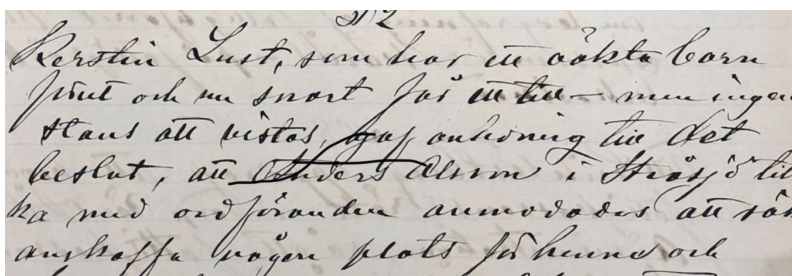 § 12
Kerstin Lust, som har ett oäkta barn
förut och nu snart får ett till – men ingen
stans att vistas, gaf anledning till det
beslut, att Anders Olsson i Stråsjö til
ka med ordföranden anmodades att sök
anskaffa någon plats för henne och